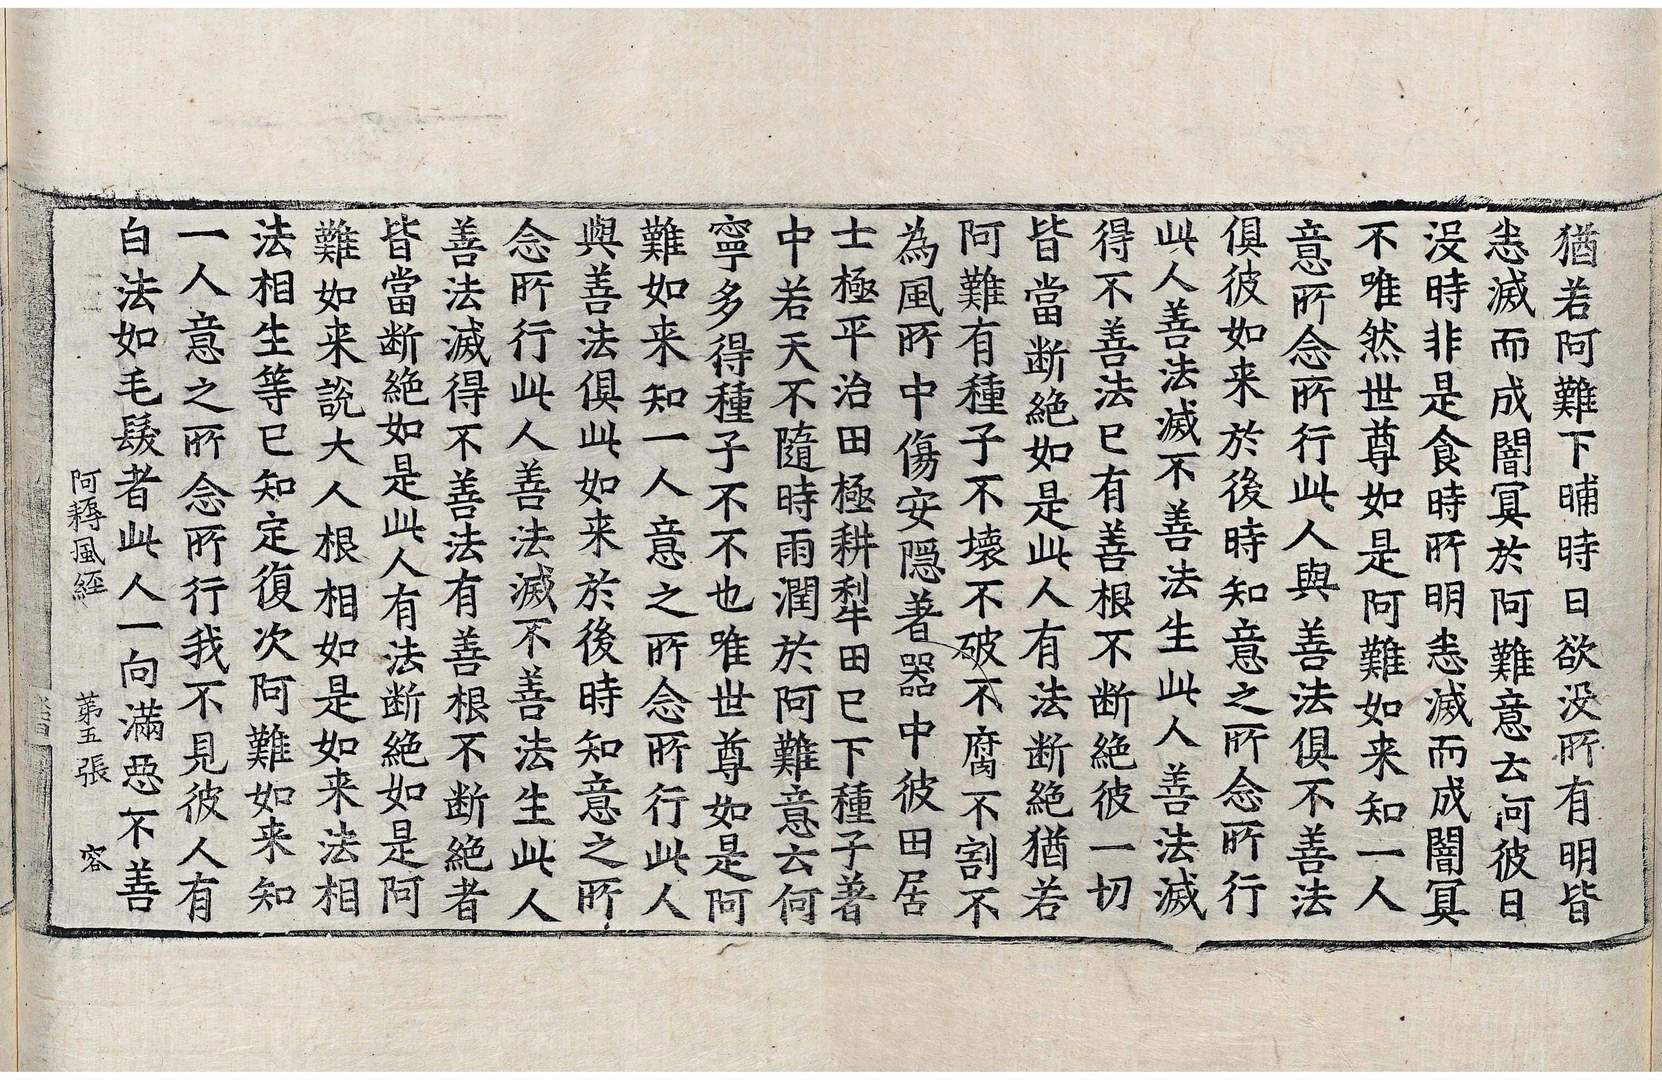 猶若阿難下晡時日欲没所有明皆
恚滅而成闇冥於阿難意云何彼日
没時非是食時所明恚滅而成闇冥
不唯然世尊如是阿難如来知一人
意所念所行此人與善法俱不善法
俱彼如来於後時知意之所念所行
此人善法滅不善法生此人善法滅
得不善法已有善根不断絶彼一切
皆當断絶如是此人有法断絶猶若
阿難有種子不壊不破不腐不割不
為風所中傷安隠著器中彼田居
士極平治田極耕犁田已下種子著
中若天不隨時雨潤於阿難意云何
寧多得種子不不也唯世尊如是阿
難如来知一人意之所念所行此人
與善法俱此如来於後時知意之所
念所行此人善法滅不善法生此人
善法滅得不善法有善根不断絶者
皆當断絶如是此人有法断絶如是阿
難如来説大人根相如是如来法相
法相生等已知定復次阿難如来知
一人意之所念所行我不見彼人有
白法如毛髮者此人一向滿惡不善
阿耨風経 第五張 容